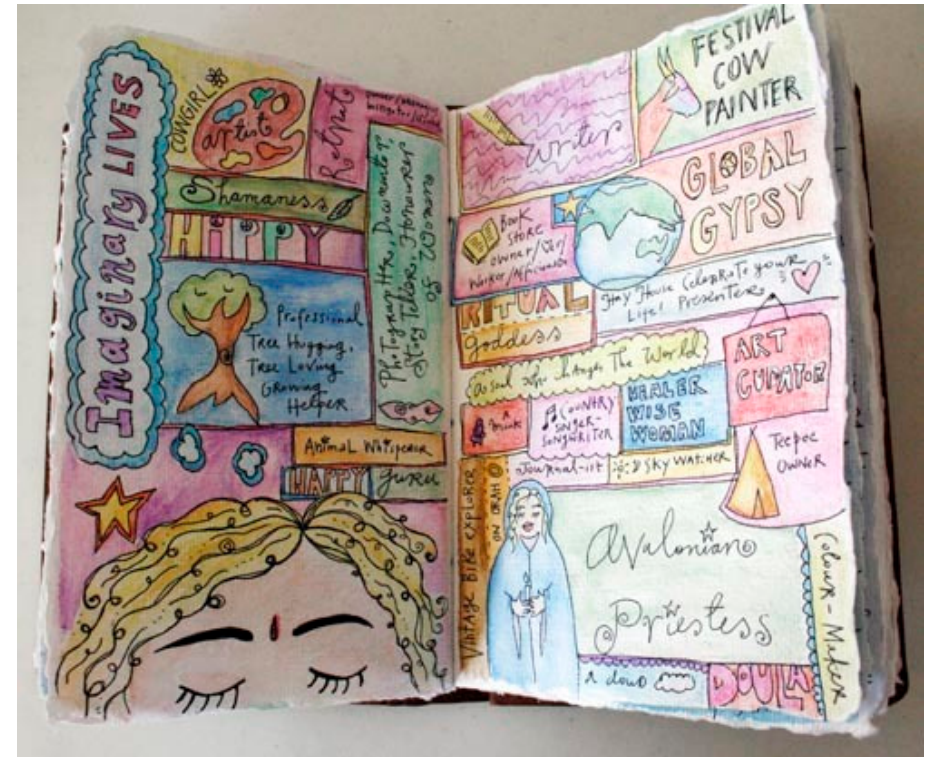 Imaginary LIVES
COWGIRL
artist
Retreat
Shamaness
HIPPY
Professional
Tree Hugging,
Tree Loving
Growing
Helper
Photographer, Documenter,
Story Teller, Honourer
of Woman
Animal Whisperer
HAPPY guru
writer
FESTIVAL
COW
PAINTER
GLOBAL
GYPSY
Book
Store
owner/
Worker/
Hay House Celebrate your
Life! Presenter
RITUAL
Goddess
A Soul who changes The World
ART
CURATOR
A
Monk
COUNTRY
SINGER-
SONGWRITER
HEALER
WISE
WOMAN
Teepee
OWNER
Journal-ist
SKY WATCHER
Vintage Bike explorer
ON
Avalonian
Priestess
Colour-Maker
A cloud
DOULA